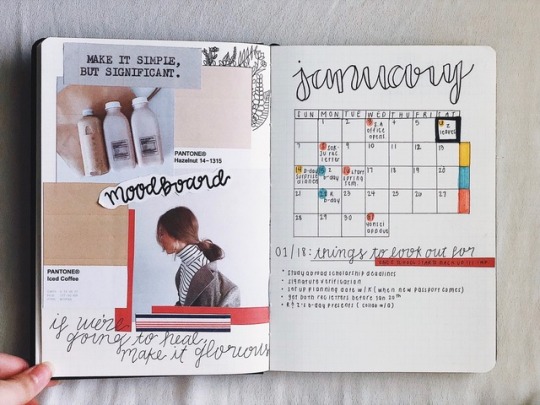 MAKE IT SIMPLE,
BUT SIGNIFICANT.
PANTONE®
Hazelnut 14-1315
moodboard
PANTONE®
Iced Coffee
if we're
going to heal,
make it glorious
january
SUN MON TUE WED THU FRI SAT
1 2 3 4 5 6
office
opens
leaves
7 8 9 10 11 12 13
rec
letter
14 15 16 17 18 19 20
b-day
surprise
dance
b-day
start
spring
sem.
21 22 23 24 25 26 27
b-day
28 29 30 31
01/18: things to look out for
• study abroad scholarship deadlines
• signature verification
• set up planning date w/ K (when new passport comes)
• get both rec letters before jan 20th
b-day presents